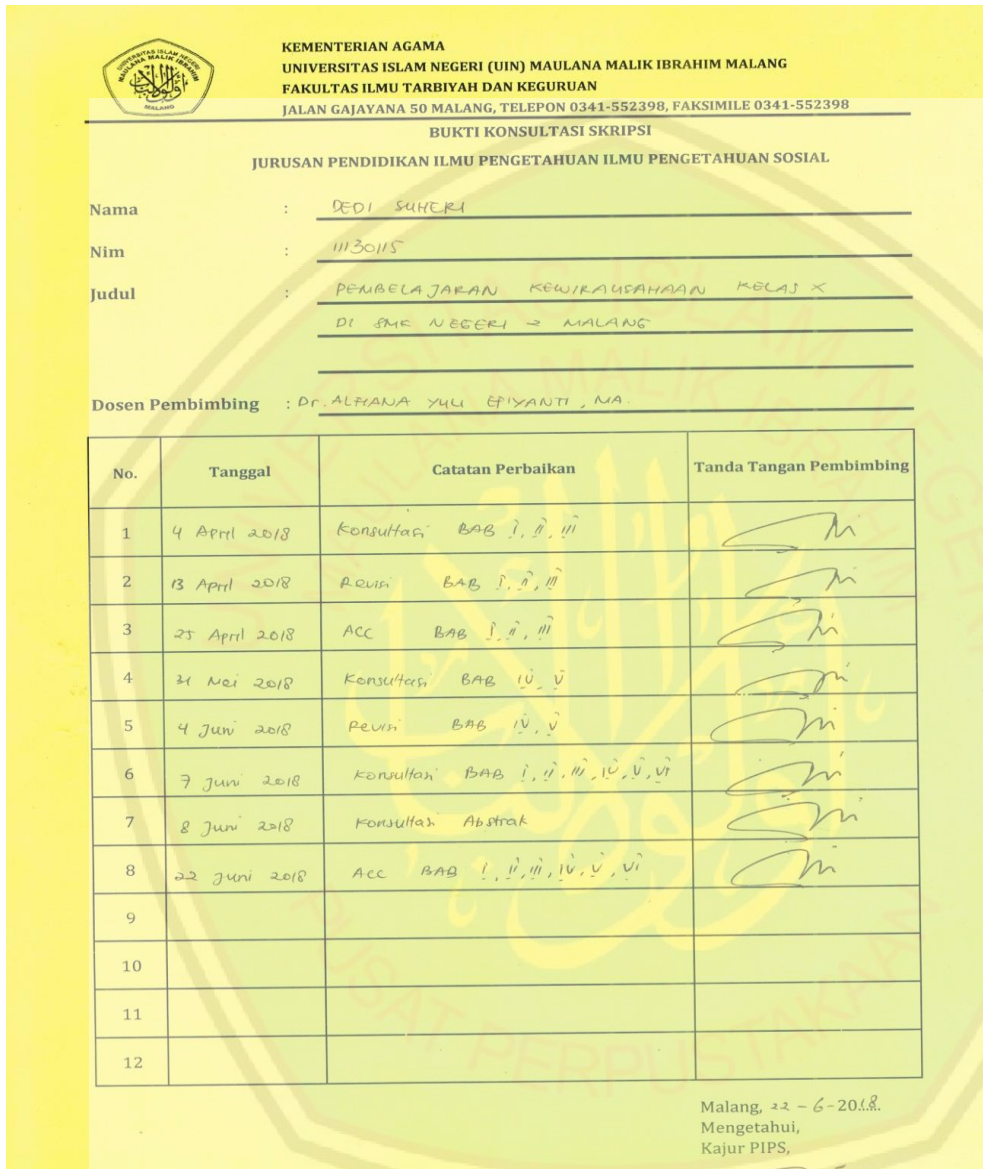 UNIVERSITAS ISLAM NEGERI
MAULANA MALIK IBRAHIM
MALANG
KEMENTERIAN AGAMA
UNIVERSITAS ISLAM NEGERI (UIN) MAULANA MALIK IBRAHIM MALANG
FAKULTAS ILMU TARBIYAH DAN KEGURUAN
JALAN GAJAYANA 50 MALANG, TELEPON 0341-552398, FAKSIMILE 0341-552398
BUKTI KONSULTASI SKRIPSI
JURUSAN PENDIDIKAN ILMU PENGETAHUAN ILMU PENGETAHUAN SOSIAL
Nama : DEDI SUHERI
Nim : 11130115
Judul : PEMBELAJARAN KEWIRAUSAHAAN KELAS X
DI SMK NEGERI 2 MALANG
Dosen Pembimbing : Dr. ALFIANA YULI EFIYANTI, MA.
No. Tanggal Catatan Perbaikan Tanda Tangan Pembimbing
1 4 April 2018 Konsultasi BAB I, II, III
2 13 April 2018 Revisi BAB I, II, III
3 25 April 2018 ACC BAB I, II, III
4 31 Mei 2018 Konsultasi BAB IV, V
5 4 Juni 2018 Revisi BAB IV, V
6 7 Juni 2018 Konsultasi BAB I, II, III, IV, V, VI
7 8 Juni 2018 Konsultasi Abstrak
8 22 Juni 2018 ACC BAB I, II, III, IV, V, VI
9
10
11
12
Malang, 22 - 6 - 2018.
Mengetahui,
Kajur PIPS,
PUSAT PERPUSTAKAAN